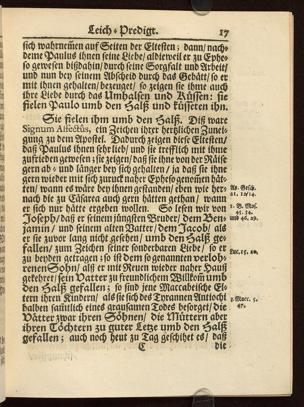 Leich-Predigt. 17
sich wahrnemen auf Seiten der Eltesten; dann/ nach-
deme Paulus ihnen seine Liebe/ alldieweil er zu Ephe-
so gewesen bißdahin/ durch seine Sorgfalt und Arbeit/
und nun bey seinem Abscheid durch das Gebätt/ so er
mit ihnen gehalten/ bezeuget/ so zeigen sie ihme auch
ihre Liebe durch das Umhalsen und Küssen: sie
fielen Paulo umb den Halß und küsseten ihn.
Sie fielen ihm umb den Halß. Diß ware
Signum Affectûs, ein Zeichen ihrer hertzlichen Zunei-
gung zu dem Apostel. Dadurch zeigen diese Eltesten/
daß Paulus ihnen sehr lieb/ und sie trefflich mit ihme
zufrieden gewesen; sie zeigen/ daß sie ihne von der Räise
gern ab- und länger bey sich gehalten/ ja daß sie ihne
gern wieder mit sich zuruck naher Epheso genommen hät-
ten/ wann es wäre bey ihnen gestanden/ eben wie her-
nach die zu Cäsarea auch gern hätten gethan/ wann
er sich nur hätte ergeben wollen. So lesen wir von
Joseph/ daß er seinem jüngsten Bruder/ dem Ben-
jamin/ und seinem alten Vatter/ dem Jacob/ als
er sie zuvor lang nicht gesehen/ umb den Halß ge-
fallen/ zum Zeichen seiner sonderbaren Liebe/ so er
zu beyden getragen; so ist dem so genannten verloh-
renen Sohn/ als er mit Reuen wieder naher Hauß
gekehret/ sein Vatter zu freundlichem Willkomm umb
den Halß gefallen; so sind jene Maccabeische El-
tern ihren Kindern/ als sie sich des Tyrannen Antiochi
halben sämtlich eines grausamen Todes besorget/ die
Vätter zwar ihren Söhnen/ die Müttern aber
ihren Töchtern zu guter Letze umb den Halß
gefallen; auch noch heut zu Tag geschihet es/ daß
C die
Ap. Gesch.
21. 12/14.
1. B. Mos.
45. 14.
und 46. 29.
Luc. 15. 20.
3. Macc. 5.